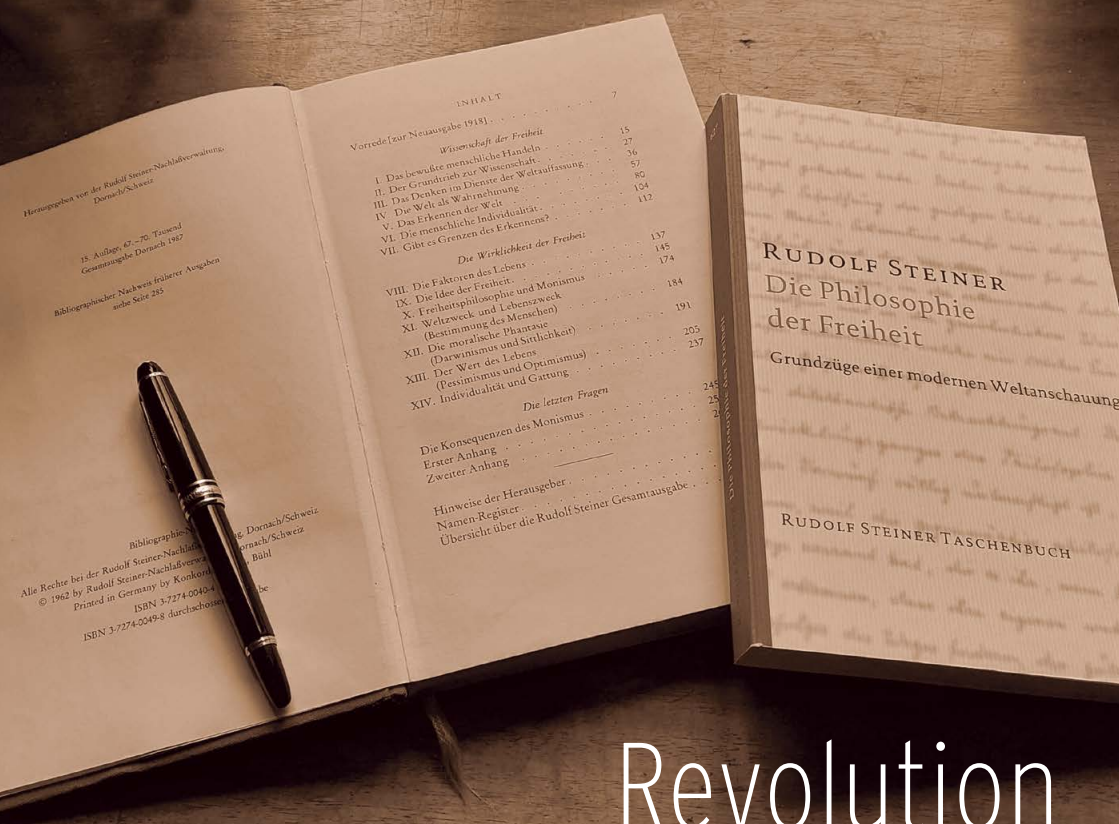 Herausgegeben von der Rudolf Steiner-Nachlaßverwaltung,
Dornach/Schweiz
15. Auflage, 67.–70. Tausend
Gesamtausgabe Dornach 1987
Bibliographischer Nachweis früherer Ausgaben
siehe Seite 285
Dornach/Schweiz
Alle Rechte bei der Rudolf Steiner-Dornach/Schweiz
© 1962 by Rudolf Steiner-Bühl
Printed in Germany by
ISBN 3-7274-0040-4
ISBN 3-7274-0049-8
INHALT
Vorrede [zur Neuausgabe 1918] . . . . . . . . 7
Wissenschaft der Freiheit
I. Das bewußte menschliche Handeln . . . . . 15
II. Der Grundtrieb zur Wissenschaft . . . . . 27
III. Das Denken im Dienste der Weltauffassung . . . 36
IV. Die Welt als Wahrnehmung . . . . . 57
V. Das Erkennen der Welt . . . . . 80
VI. Die menschliche Individualität . . . . . 104
VII. Gibt es Grenzen des Erkennens? . . . . . 112
Die Wirklichkeit der Freiheit
VIII. Die Faktoren des Lebens . . . . . 137
IX. Die Idee der Freiheit . . . . . 145
X. Freiheitsphilosophie und Monismus . . . . . 174
XI. Weltzweck und Lebenszweck
(Bestimmung des Menschen) . . . . . 184
XII. Die moralische Phantasie
(Darwinismus und Sittlichkeit) . . . . . 191
XIII. Der Wert des Lebens
(Pessimismus und Optimismus) . . . . . 205
XIV. Individualität und Gattung . . . . . 237
Die letzten Fragen
Die Konsequenzen des Monismus . . . . . 245
Erster Anhang
Zweiter Anhang
Hinweise der Herausgeber
Namen-Register
Übersicht über die Rudolf Steiner Gesamtausgabe
Die Philosophie der Freiheit
RUDOLF STEINER
Die Philosophie
der Freiheit
Grundzüge einer modernen Weltanschauung
RUDOLF STEINER TASCHENBUCH
Revolution